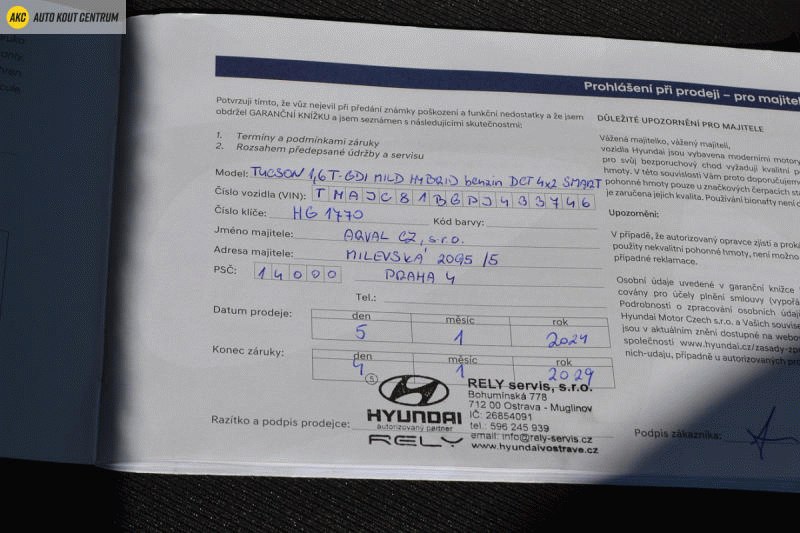 AKC AUTO KOUT CENTRUM
Prohlášení při prodeji – pro majitel
Potvrzuji tímto, že vůz nejevil při předání známky poškození a funkční nedostatky a že jsem
obdržel GARANČNÍ KNÍŽKU a jsem seznámen s následujícími skutečnostmi:
1. Termíny a podmínkami záruky
2. Rozsahem předepsané údržby a servisu
Model: TUCSON 1,6 T-GDI MILD HYBRID benzin DCT 4x2 SMART
Číslo vozidla (VIN): TMAJC81BGPJ433746
Číslo klíče: HG 1770 Kód barvy:
Jméno majitele: ARVAL CZ, s.r.o.
Adresa majitele: MILEVSKÁ 2095/5
PSČ: 14000 PRAHA 4
Tel.:
Datum prodeje: den měsíc rok
5 1 2024
Konec záruky: den měsíc rok
4 1 2029
5
HYUNDAI
autorizovaný partner
RELY
RELY servis, s.r.o.
Bohumínská 778
712 00 Ostrava - Muglinov
IČ: 26854091
tel.: 596 245 939
email: info@rely-servis.cz
www.hyundaivostrave.cz
Razítko a podpis prodejce:
DŮLEŽITÉ UPOZORNĚNÍ PRO MAJITELE
Vážená majitelko, vážený majiteli,
vozidla Hyundai jsou vybavena moderními motory
pro svůj bezporuchový chod vyžadují kvalitní p
hmoty. V této souvislosti Vám proto doporučujem
pohonné hmoty pouze u značkových čerpacích sta
je zaručena jejich kvalita. Používání bionafty není d
Upozornění:
V případě, že autorizovaný opravce zjistí a prokáž
použity nekvalitní pohonné hmoty, není možno
případné reklamace.
Osobní údaje uvedené v garanční knížce
covány pro účely plnění smlouvy (vypořá
Podrobnosti o zpracování osobních údajů
Hyundai Motor Czech s.r.o. a Vašich souvisej
jsou v aktuálním znění dostupné na webo
společnosti www.hyundai.cz/zasady-zp
nich-udaju, případně u autorizovaných pr
Podpis zákazníka: